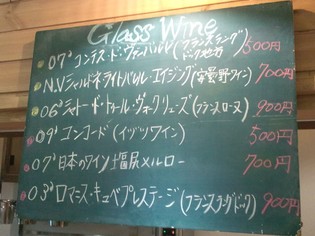 Glass Wine
07' コンテス・ド・ヴァンバルビ(フランスラングドック地方) 500円
N.V シャルドネ ライトバレル・エイジング(宇曽野ワイン) 700円
06' シャトー・ド・トゥール・ヴォークリューズ(フランスローヌ) 900円
09' コンコード(イヅツワイン) 500円
07' 日本のワイン 塩尻メルロー 700円
03' ロマニス・キュベプレステージ(フランスラングドック) 900円